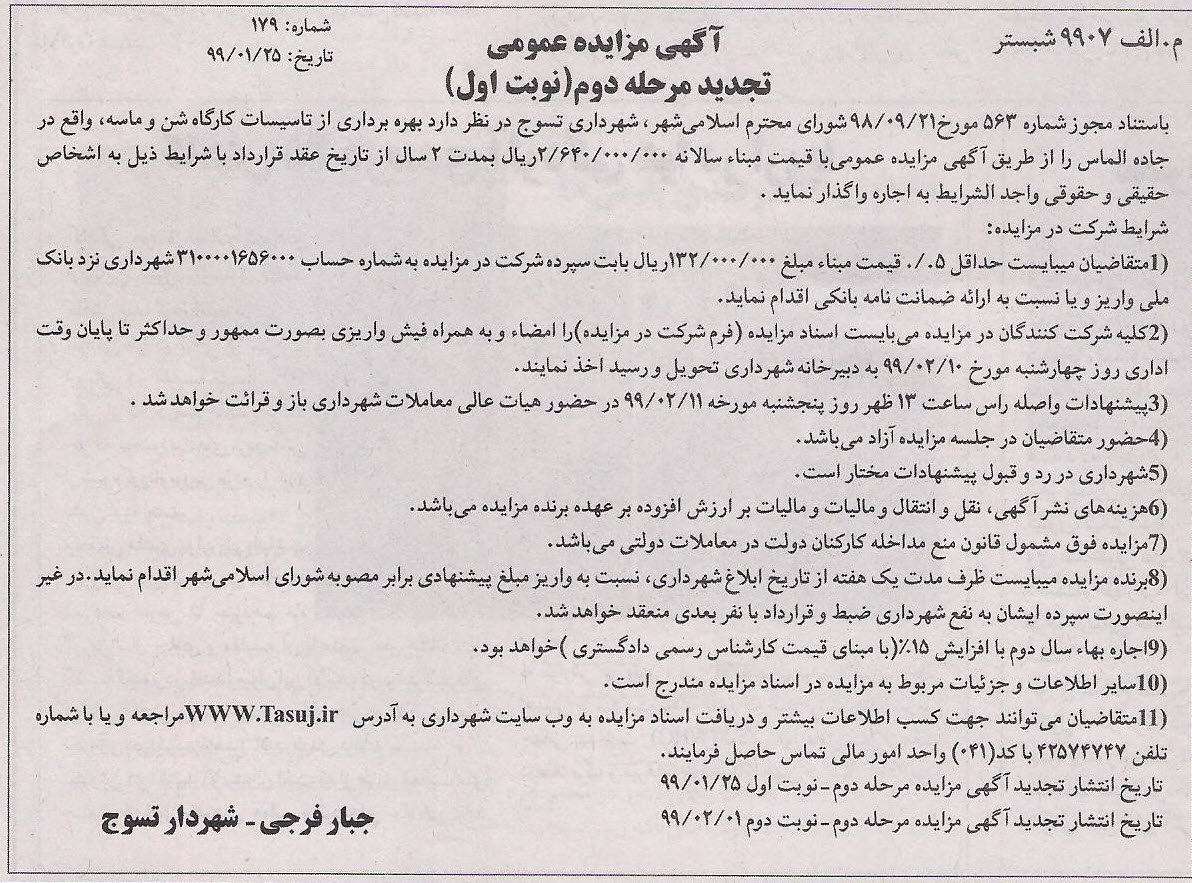 م.الف ۹۹۰۷ شبستر
آگهی مزایده عمومی
تجدید مرحله دوم(نوبت اول)
شماره: ۱۷۹
تاریخ: ۹۹/۰۱/۲۵
باستناد مجوز شماره ۵۶۳ مورخ۹۸/۰۹/۲۱شورای محترم اسلامی‌شهر، شهرداری تسوج در نظر دارد بهره برداری از تاسیسات کارگاه شن و ماسه، واقع در
جاده الماس را از طریق آگهی مزایده عمومی‌با قیمت مبناء سالانه ۲/۶۴۰/۰۰۰/۰۰۰ریال بمدت ۲ سال از تاریخ عقد قرارداد با شرایط ذیل به اشخاص
حقیقی و حقوقی واجد الشرایط به اجاره واگذار نماید .
شرایط شرکت در مزایده:
1)متقاضیان میبایست حداقل ۵٪ قیمت مبناء مبلغ ۱۳۲/۰۰۰/۰۰۰ریال بابت سپرده شرکت در مزایده به شماره حساب ۳۱۰۰۰۰۱۶۵۶۰۰۰شهرداری نزد بانک
ملی واریز و یا نسبت به ارائه ضمانت نامه بانکی اقدام نماید.
2)کلیه شرکت کنندگان در مزایده می‌بایست اسناد مزایده (فرم شرکت در مزایده)را امضاء و به همراه فیش واریزی بصورت ممهور و حداکثر تا پایان وقت
اداری روز چهارشنبه مورخ ۹۹/۰۲/۱۰ به دبیرخانه شهرداری تحویل و رسید اخذ نمایند.
3)پیشنهادات واصله راس ساعت ۱۳ ظهر روز پنجشنبه مورخه ۹۹/۰۲/۱۱ در حضور هیات عالی معاملات شهرداری باز و قرائت خواهد شد .
4)حضور متقاضیان در جلسه مزایده آزاد می‌باشد.
5)شهرداری در رد و قبول پیشنهادات مختار است.
6)هزینه‌های نشر آگهی، نقل و انتقال و مالیات و مالیات بر ارزش افزوده بر عهده برنده مزایده می‌باشد.
7)مزایده فوق مشمول قانون منع مداخله کارکنان دولت در معاملات دولتی می‌باشد.
8)برنده مزایده میبایست ظرف مدت یک هفته از تاریخ ابلاغ شهرداری، نسبت به واریز مبلغ پیشنهادی برابر مصوبه شورای اسلامی‌شهر اقدام نماید.در غیر
اینصورت سپرده ایشان به نفع شهرداری ضبط و قرارداد با نفر بعدی منعقد خواهد شد.
9)اجاره بهاء سال دوم با افزایش ۱۵٪(با مبنای قیمت کارشناس رسمی دادگستری )خواهد بود.
10)سایر اطلاعات و جزئیات مربوط به مزایده در اسناد مزایده مندرج است.
11)متقاضیان می‌توانند جهت کسب اطلاعات بیشتر و دریافت اسناد مزایده به وب سایت شهرداری به آدرس WWW.Tasuj.irمراجعه و یا با شماره
تلفن ۴۲۵۷۴۷۴۷ با کد(۰۴۱) واحد امور مالی تماس حاصل فرمایند.
تاریخ انتشار تجدید آگهی مزایده مرحله دوم_نوبت اول ۹۹/۰۱/۲۵
تاریخ انتشار تجدید آگهی مزایده مرحله دوم_نوبت دوم ۹۹/۰۲/۰۱
جبار فرجی_ شهردار تسوج